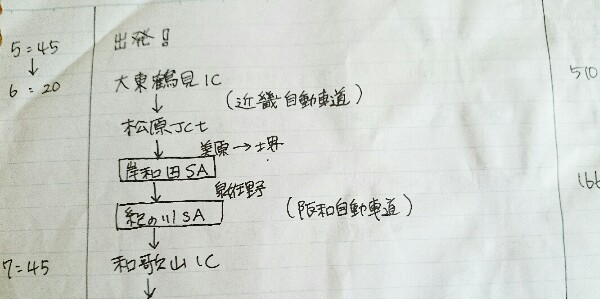 5:45 出発!
↓
6:20 大東鶴見IC
↓ (近畿自動車道)
松原Jct
↓ 美原→堺
岸和田SA
↓ 泉佐野
紀の川SA (阪和自動車道)
↓
7:45 和歌山IC
↓
510
166